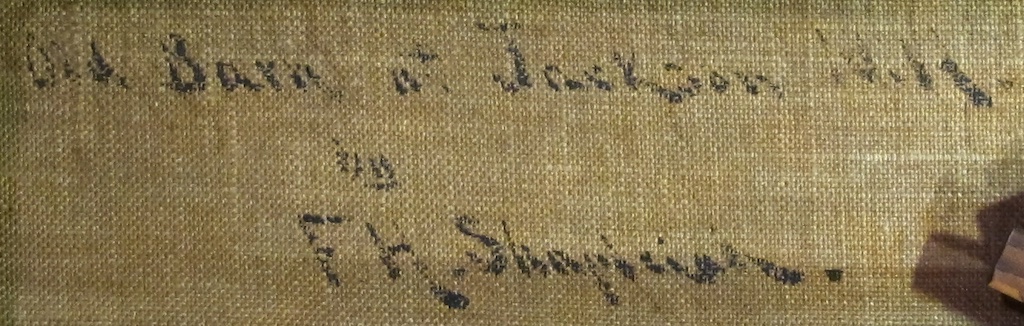 Old Barn at Jackson N.H.
by
F. H. Shapleigh.